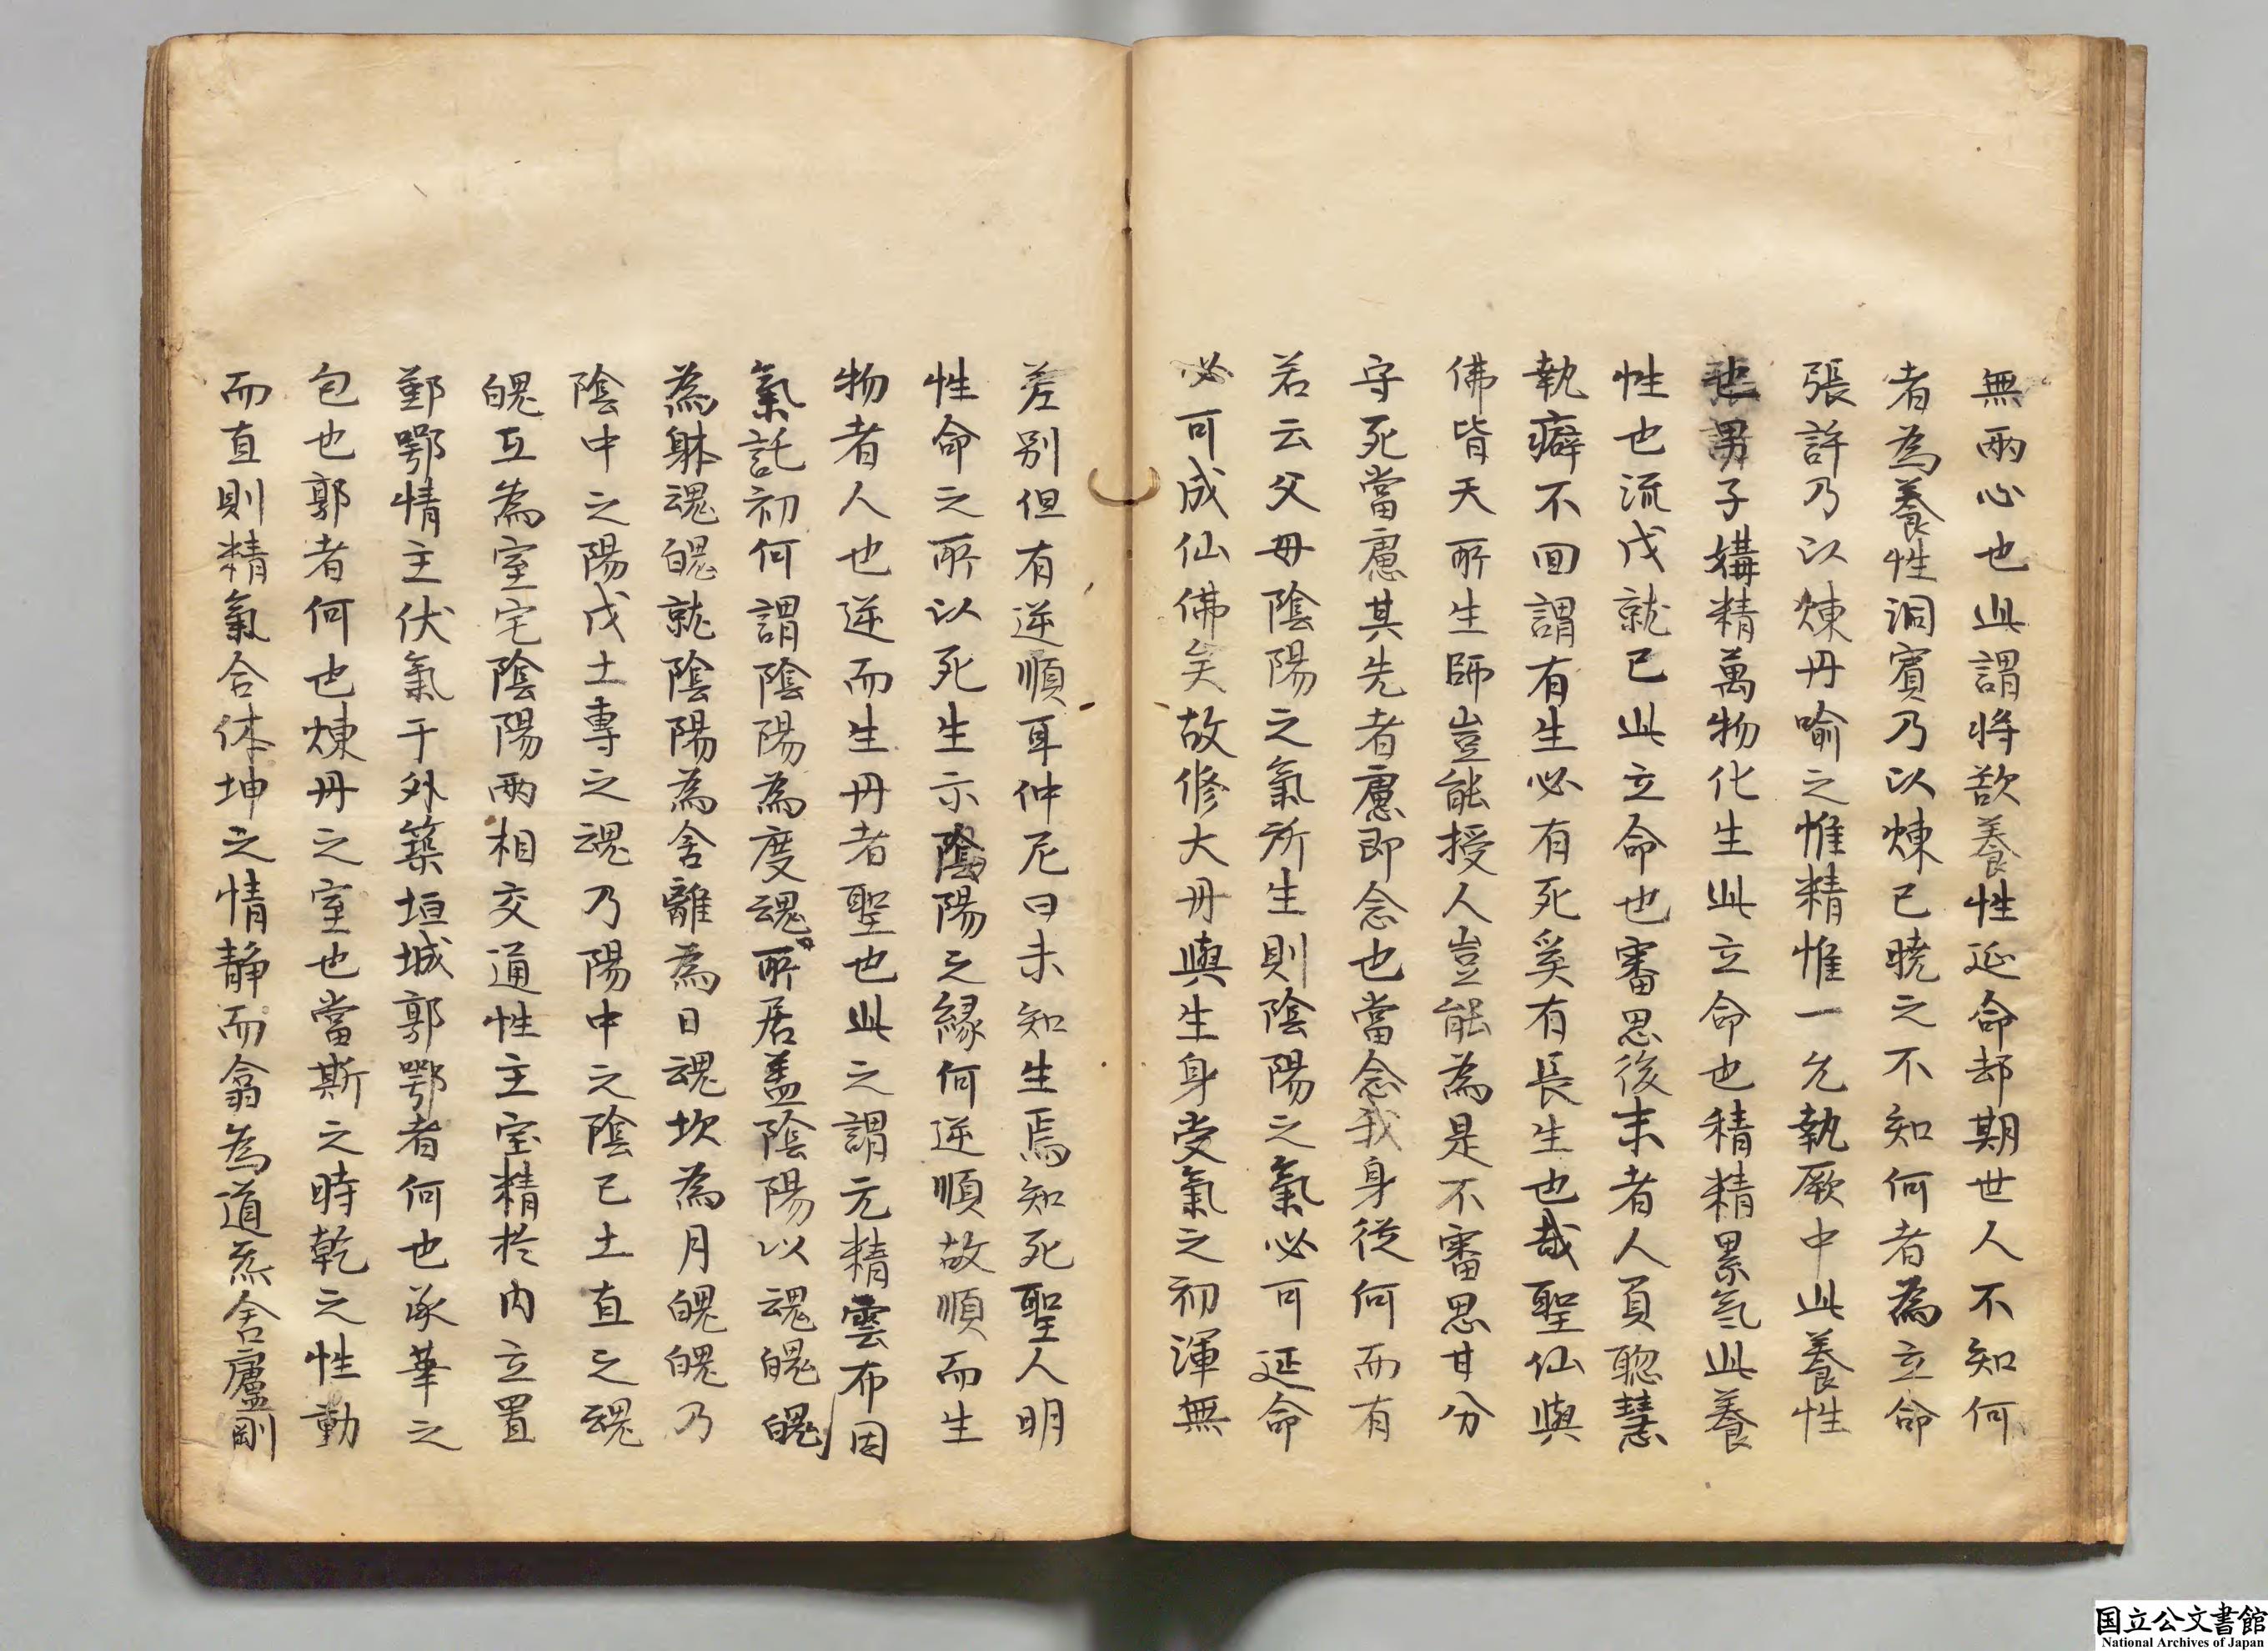 無兩心也此謂將欲養性延命却期世人不知何
者為養性洞賓乃以煉己曉之不知何者為立命
張許乃以煉丹喻之惟精惟一允執厥中此養性
也男子媾精萬物化生此立命也精精累氣此養
性也流戊就已此立命也審思後末者人負聰慧
執癖不回謂有生必有死奚有長生也哉聖仙與
佛皆天所生師豈能授人豈能為是不審思甘分
守死當慮其先者慮即念也當念我身從何而有
若云父毋陰陽之氣所生則陰陽之氣必可延命
必可成仙佛矣故修大丹與生身受氣之初渾無
差別但有逆順耳仲尼曰未知生焉知死聖人明
性命之所以死生示陰陽之緣何逆順故順而生
物者人也逆而生丹者聖也此之謂元精雲布因
氣託初何謂陰陽為度魂所居盖陰陽以魂魄魄
為躰魂魄就陰陽為舍離為日魂坎為月魄魄乃
陰中之陽戊土專之魂乃陽中之陰已土直之魂
魄互為室宅陰陽兩相交通性主室精於内立置
鄞鄂情主伏氣于外築垣城郭鄂者何也承華之
包也郭者何也煉丹之室也當斯之時乾之性動
而直則精氣合体坤之情静而翕為道炁舍廬剛
国立公文書館
National Archives of Japan